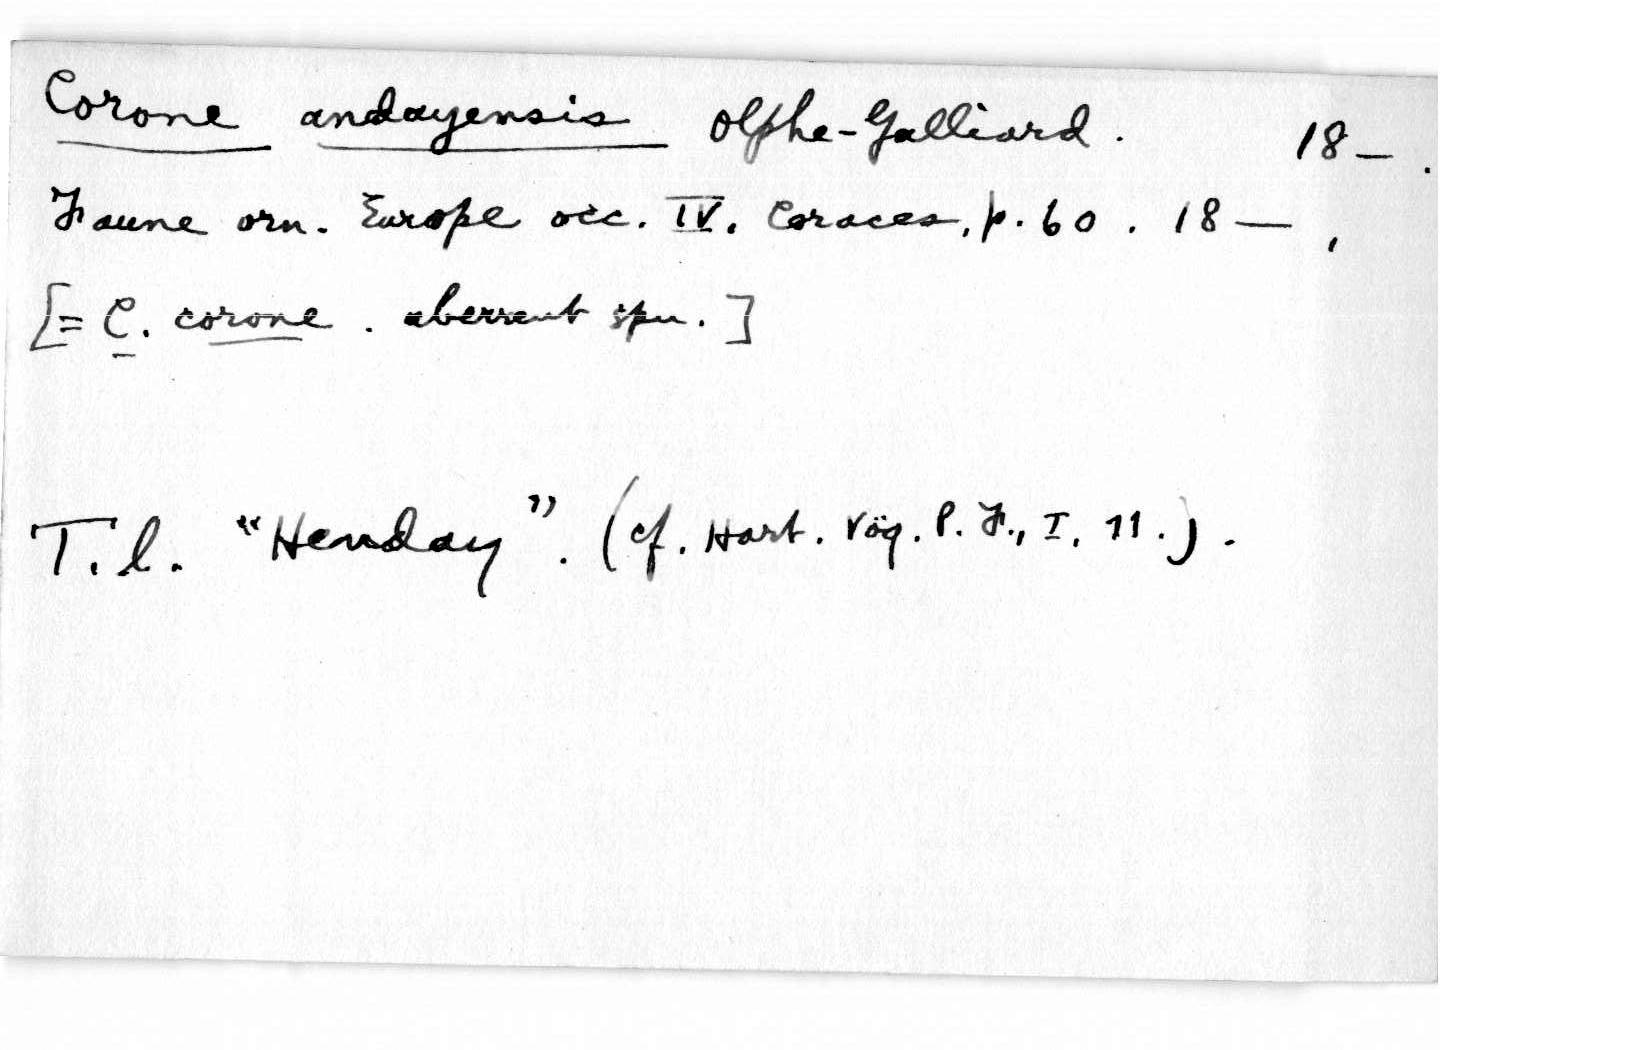 Corone andayensis Olphe-Galliard. 18—.
Faune orn. Europe occ. IV. Coraces, p. 60. 18—,
[= C. corone. aberrant spn.]
T. l. "Henday". (cf. Hart. Vög. P. F., I, 11.).